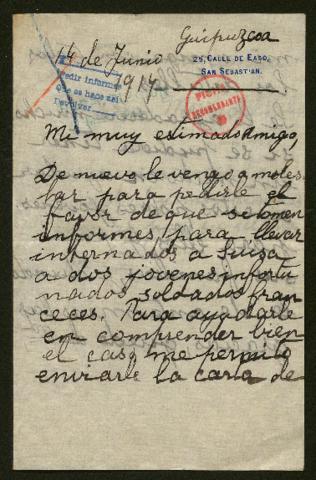 Guipuzcoa
14 de Junio
25, CALLE DE EASO,
SAN SEBASTIAN.
1917
Pedir informes
que se hace así
Mi muy estimado Amigo,
De nuevo le vengo a moles
tar para pedirle el
favor de que se tomen
informes para llevar
internados a Suiza
a dos jovenes infortu
nados soldados fran
ceces. Para ayudarle
en comprender bien
el caso, me permito
enviarle la carta de